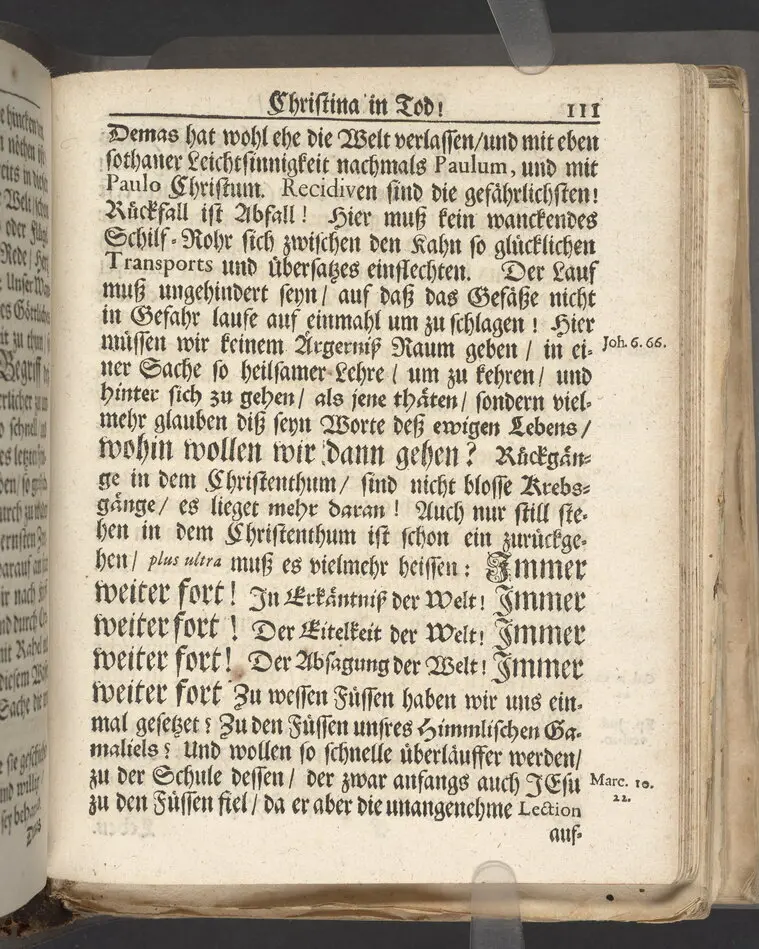 Christina in Tod! 111
Demas hat wohl ehe die Welt verlassen/und mit eben
sothaner Leichtsinnigkeit nachmals Paulum, und mit
Paulo Christum. Recidiven sind die gefährlichsten!
Rückfall ist Abfall! Hier muß kein wanckendes
Schilf-Rohr sich zwischen den Kahn so glücklichen
Transports und übersatzes einflechten. Der Lauf
muß ungehindert seyn/ auf daß das Gefäße nicht
in Gefahr laufe auf einmahl um zu schlagen! Hier
müssen wir keinem Ärgerniß Raum geben/ in ei- Joh. 6. 66.
ner Sache so heilsamer Lehre/ um zu kehren/ und
hinter sich zu gehen/ als jene thäten/ sondern viel-
mehr glauben diß seyn Worte deß ewigen Lebens/
wohin wollen wir dann gehen? Rückgän-
ge in dem Christenthum/ sind nicht blosse Krebs-
gänge/ es lieget mehr daran! Auch nur still ste-
hen in dem Christenthum ist schon ein zurückge-
hen/ plus ultra muß es vielmehr heissen: Immer
weiter fort! In Erkäntniß der Welt! Immer
weiter fort! Der Eitelkeit der Welt! Immer
weiter fort! Der Absagung der Welt! Immer
weiter fort Zu wessen Füssen haben wir uns ein-
mal gesetzet? Zu den Füssen unsres Himmlischen Ga-
maliels? Und wollen so schnelle überläuffer werden/
zu der Schule dessen/ der zwar anfangs auch JEsu Marc. 10.
zu den Füssen fiel/ da er aber die unangenehme Lection 22.
auf-